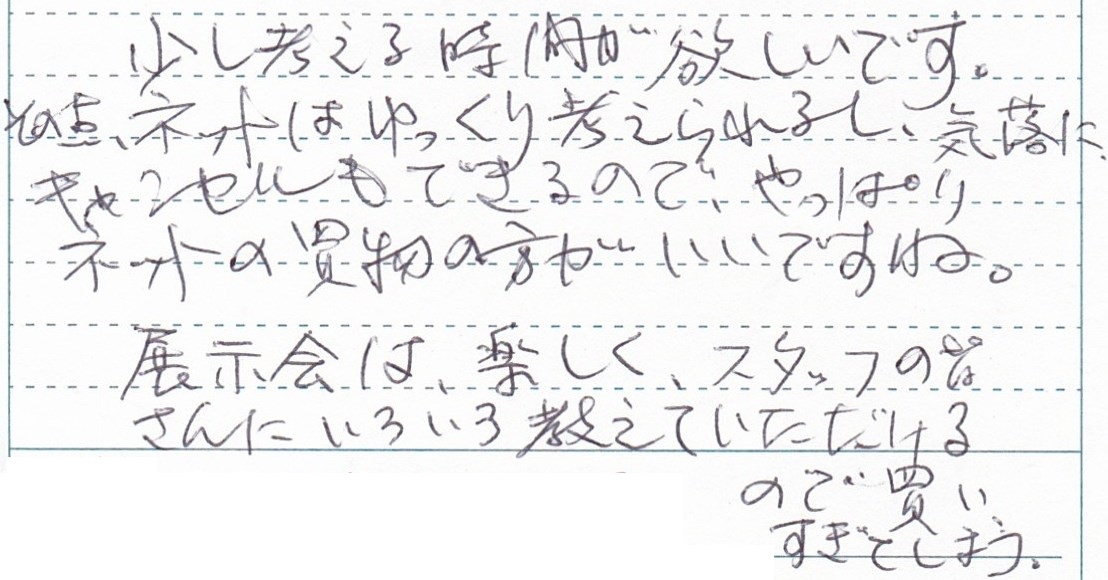 少し考える時間が欲しいです。
その点、ネットはゆっくり考えられるし、気落に
キャンセルもできるので、やっぱり
ネットの買物の方がいいですね。
展示会は、楽しく、スタッフの皆
さんにいろいろ教えていただける
ので買い
すぎてしまう。